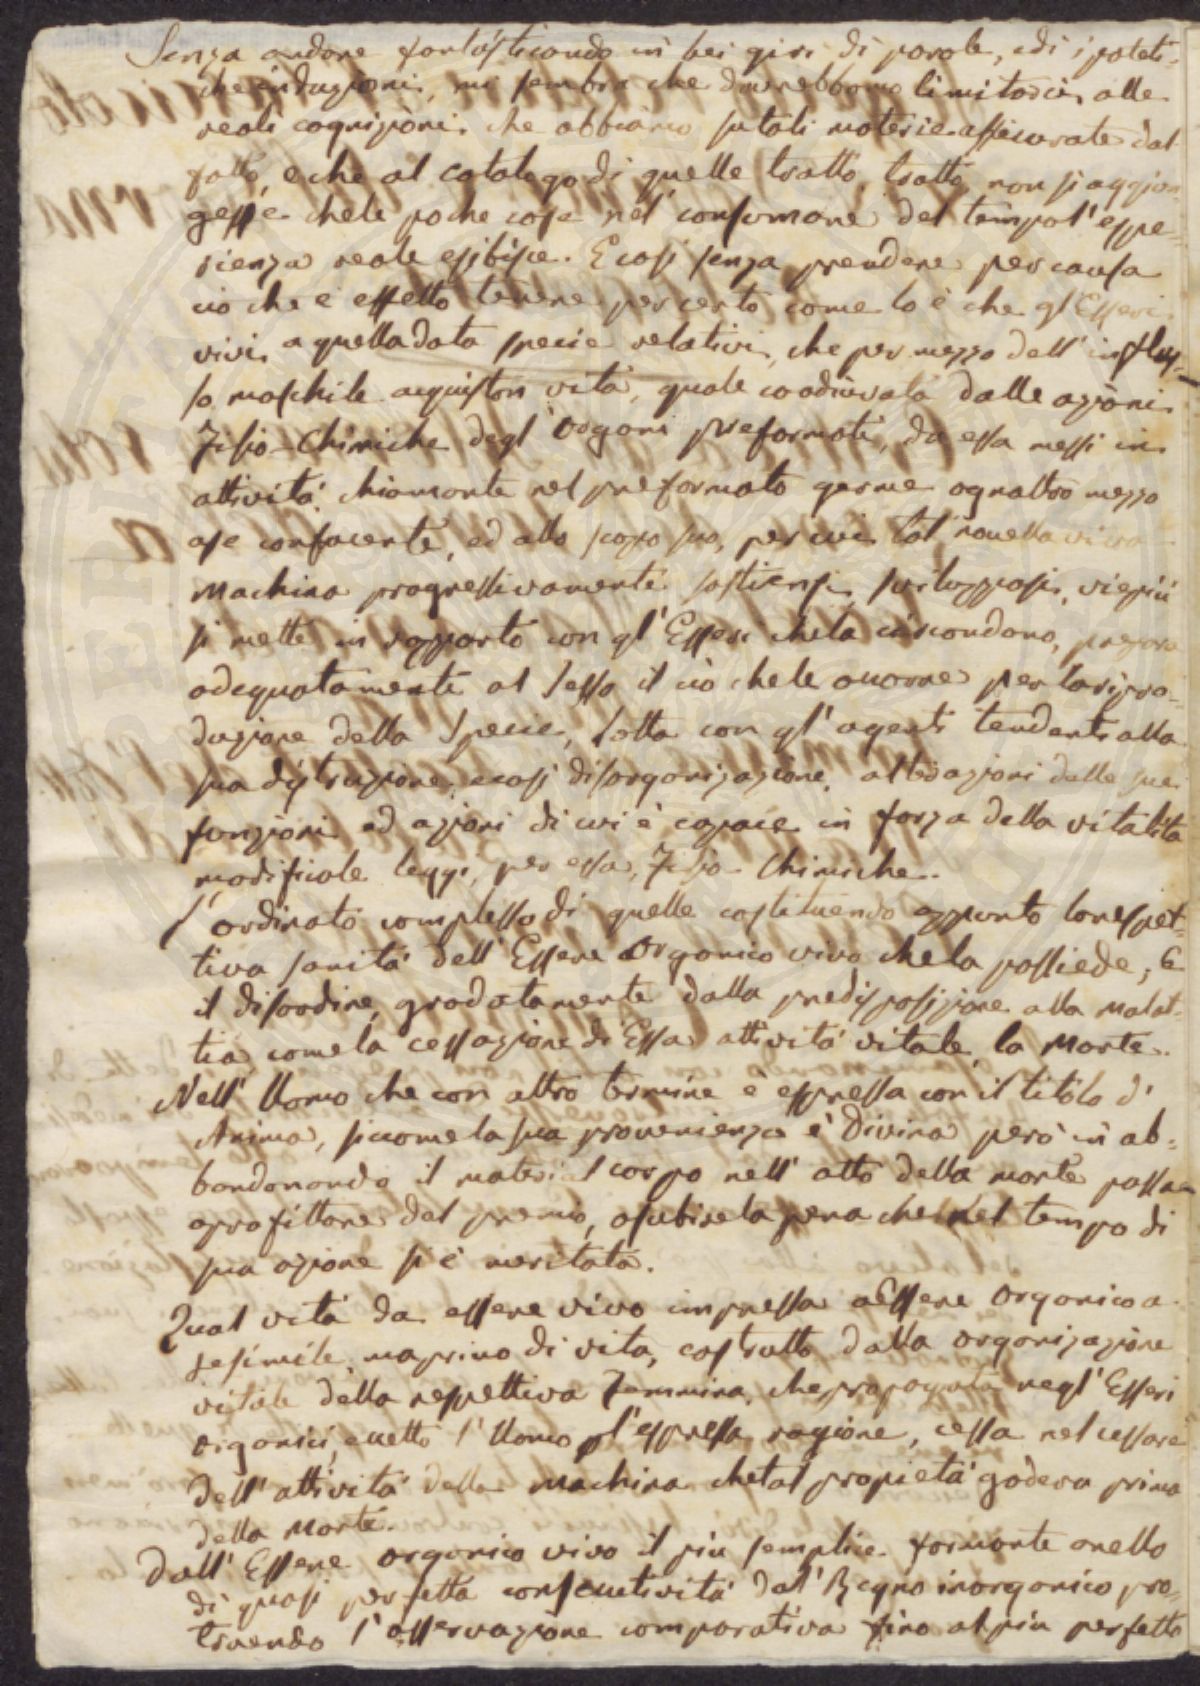 Senza andare fantasticando in bei giri di parole, e di ipoteti-
che induzioni, mi sembra che dovrebbamo limitarci alle
reali cognizioni che abbiamo su tali materie assicurate dal
fatto, e che al catalogo di quelle tratto, tratto non si aggion-
gesse che le poche cose nel consumare del tempo l'espe-
rienza reale esibisce. E così senza prendere per causa
ciò che è effetto tenere per certo come lo è che gl'Esseri
vivi a quella data specie relativi, che per mezzo dell'influs-
so maschile acquiston vita, quale coadiuvata dalle azioni
Fisio-Chimiche degl'Organi preformati, da essa messi in
attività chiamante nel preformato germe ognaltro mezzo
a se confacente, ed allo scopo suo, per cui tal novella viva
machina progressivamente sostiensi, sviluppasi, viepiù
si mette in rapporto con gl'Esseri che la circondano, prepara
adequatamente al sesso il ciò che le occorre per la ripro-
duzione della Specie, lotta con gl'agenti tendenti alla
sua distruzione, e così disorganizazione, alterazioni delle sue
funzioni ed azioni di cui è capace in forza della vitalità
modificale leggi, per essa, Fisio-Chimiche.
L'ordinato complesso di quelle costituendo appunto la respet-
tiva sanità dell'Essere Organico vivo che la possiede, E
il disordine, gradatamente dalla predisposizione alla malat-
tia come la cessazione di Essa attività vitale, la Morte.
Nell'Uomo che con altro termine è espressa con il titolo d'
Anima, siccome la sua provenienza è Divina però in ab-
bandonando il material corpo nell'atto della morte passa
a profittare del premio, o subire la pena che nel tempo di
sua azione si è meritata.
Qual vita da essere vivo impressa a Essere organico a
se simile, ma privo di vita, costrutto dalla organizazione
vitale della respettiva Femmina, che propagata negl'Esseri
organici, eccetto l'Uomo pl'espressa ragione, cessa nel cessare
dell'attività della machina che tal propietà godeva prima
della Morte.
Dall'Essere organico vivo il più semplice formante anello
di quasi perfetta consecutività dal Regno inorganico pro-
traendo l'osservazione comparativa fino al più perfetto